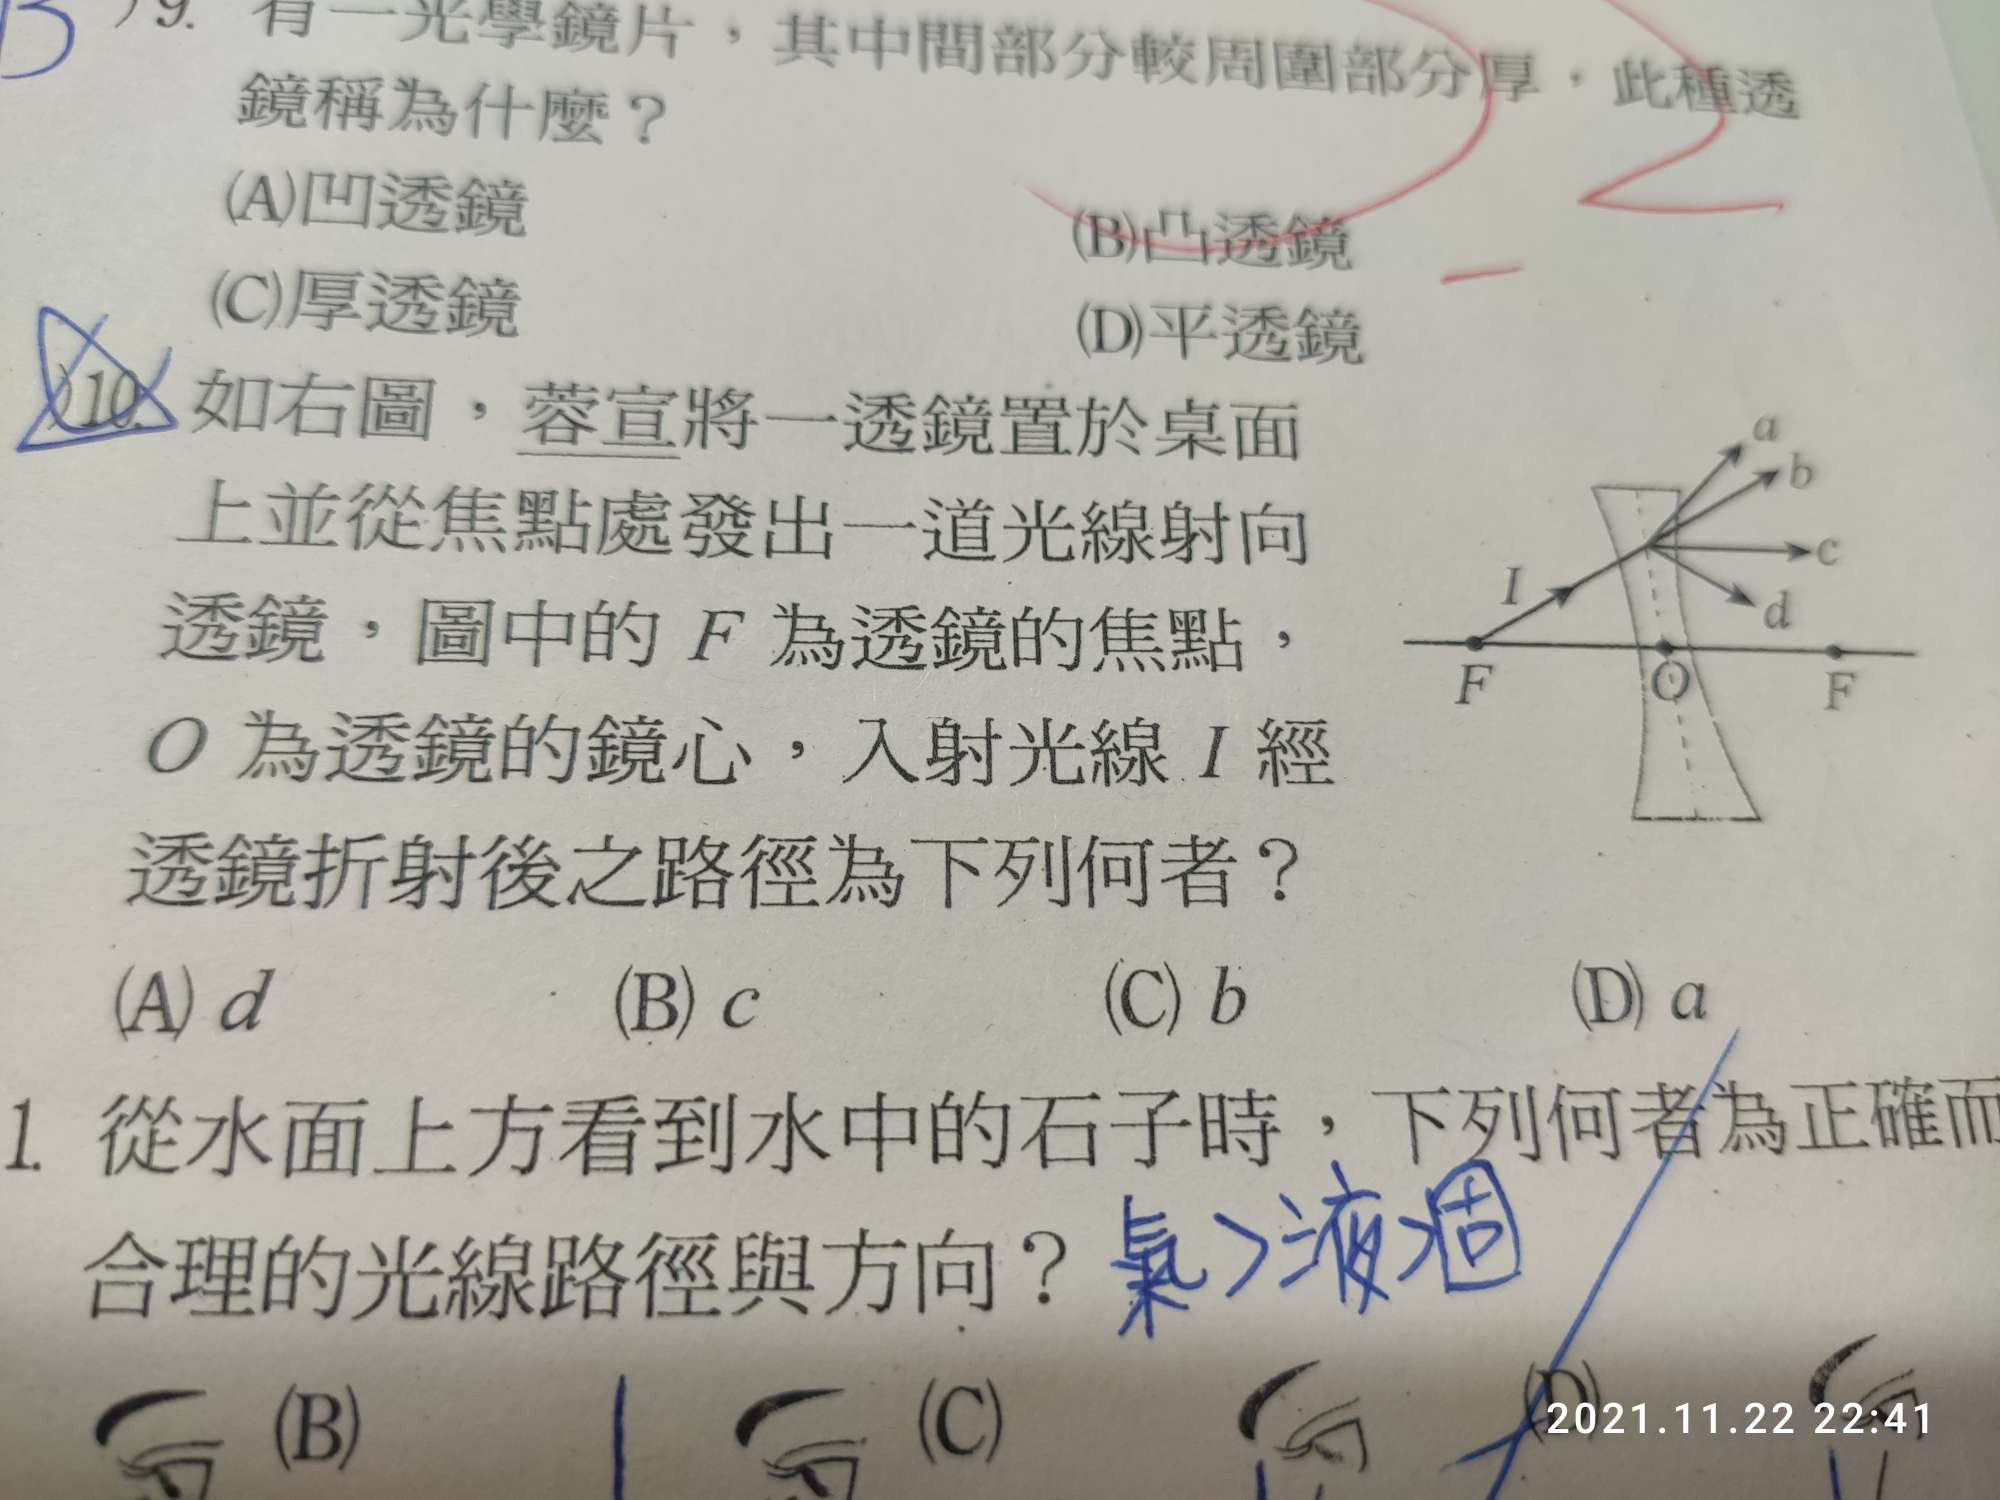 B )9. 有一光學鏡片，其中間部分較周圍部分厚，此種透
鏡稱為什麼？
(A)凹透鏡 (B)凸透鏡
(C)厚透鏡 (D)平透鏡
)10. 如右圖，蓉宣將一透鏡置於桌面
上並從焦點處發出一道光線射向
透鏡，圖中的 F 為透鏡的焦點，
O 為透鏡的鏡心，入射光線 I 經
透鏡折射後之路徑為下列何者？
a
b
c
d
I
F O F
(A) d (B) c (C) b (D) a
1. 從水面上方看到水中的石子時，下列何者為正確而
合理的光線路徑與方向？ 氣>液>固
(B) (C) (D)
2021.11.22 22:41